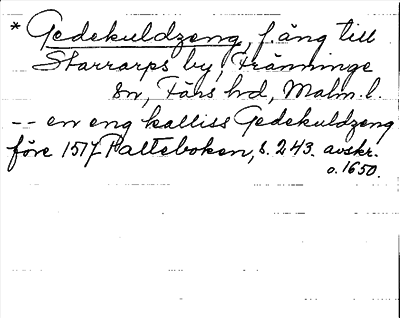 * Gedekuldzeng, f. äng till
Starrarps by, Fränninge
sn, Färs hd, Malm. l.
-- en eng kalliss Gedekuldzeng
före 1517. Palteboken, s. 243. avskr.
o. 1650.